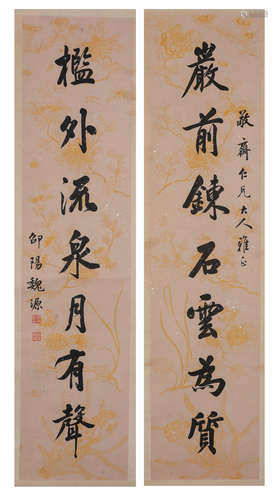 巖前鍊石雲為質
敬齋仁兄大人雅正
檻外流泉月有聲
邵陽魏源